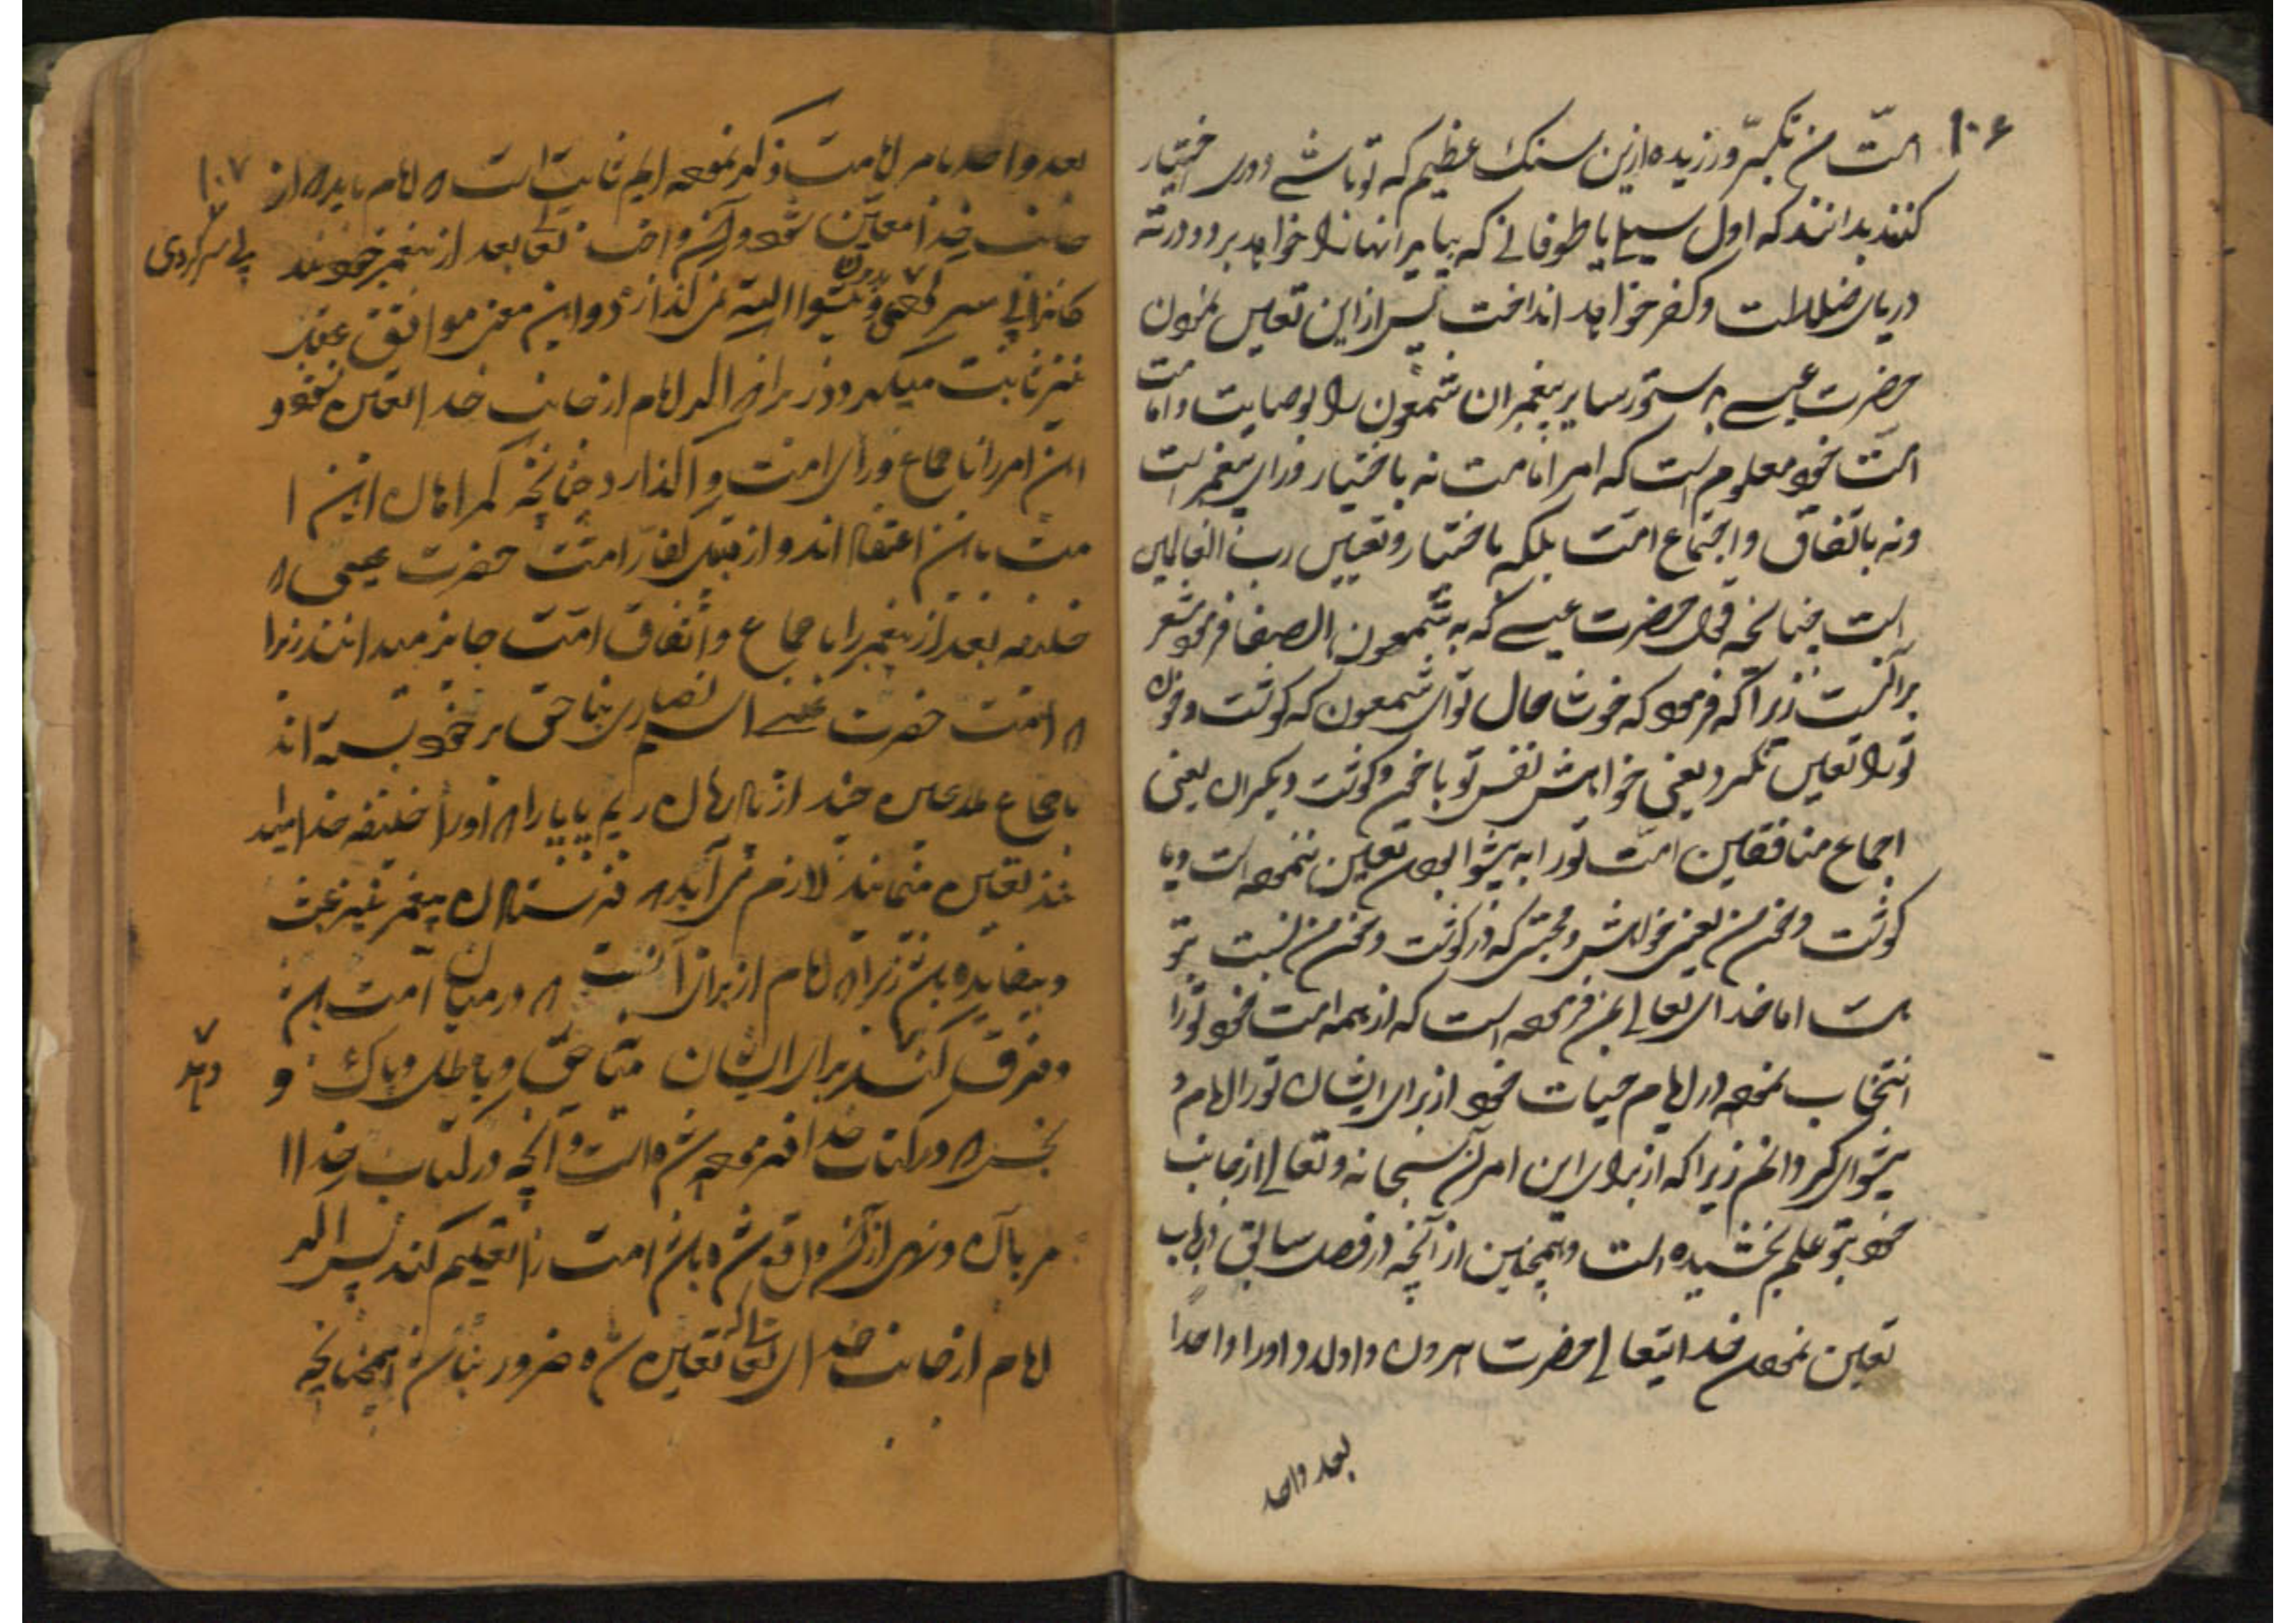 ۱۰۶
امّت من تکبّر ورزیده ازین سنک عظیم که تو باشے دوری اختیار
کنند بدانند که اول سیلے یا طوفانے که بیاید انهانرا خواهد برد و در ته
دریای ضلالت و کفر خواهد انداخت پس از این تعیین نمودن
حضرت عیسے بدستور سایر پیغمبران شمعون را بوصایت و امامت
امّت خود معلوم است که امر امامت نه باختیار و رای پیغمبر است
و نه باتفاق و اجتماع امّت بلکه باختیار و تعیین رب العالمین
است چنانچه قول حضرت عیسے که به شمعون الصفا فرمود مشعر
بر آنست زیرا که فرمود که خوشا حال تو ای شمعون که کوشت و خون
تو را تعیین نکرد یعنی خواهش نفس تو با خون و کوشت دیکران یعنی
اجماع منافقین امّت تو را به پیشوا بودن تعیین ننموده است و یا
کوشت و خون من یعنی خواهش و محبتی که در کوشت و خون من نسبت بتو
هست اما خدای تعالے بمن فرموده است که از همه امت خود تو را
انتخاب نموده در ایام حیات خود از برای ایشان تو را امام و
پیشوای کردانم زیرا که از برای این امر آن سبحانه و تعالے از جانب
خود بتو علم بخشیده است و همچنین از آنچه در فصل سابق در باب
تعیین نمودن خدایتعالے حضرت هرون و اولاد او را واحدا
بعد واحد
۱۰۷
بعد واحد بامر امامت ذکر نموده ایم ثابت است که امام باید که از
جانب خدا معین شود و آن واجب تعالی بعد از پیغمبر خود بند
برای سرکردی
کانرا بے سر کرده و بدون پیشوا البته نمی کذارد و این معنی موافق عقل
نیز ثابت میکردد زیرا که اکر امام از جانب خدا تعیین نشود و
این امر را باجماع و رای امّت واکذارد چنانچه کمراهان این ا
مت باین اعتقاد اند و از قبیل کفار امّت حضرت عیسی که
خلیفه بعد از پیغمبر را باجماع و اتفاق امّت جایز میدانند زیرا
که امّت حضرت عیسے اسم نصاری بناحق بر خود بسته اند
باجماع ملاعین چند از پادریان ریم پاپا را که او را خلیفه خدا میدا
نند تعیین مینمایند لازم می آید که فرستادن پیغمبر نیز عبث
و بیفایده باشد زیرا که امام از برای آنست که در میان امت باشد
و فرق کند برای ایشان میان حق و باطل و پاک و
نجس که در کتاب خدا فرموده شده است و آنچه در کتاب خدا ا
مر بآن و نهی از آن واقع شده باشد امت را تعلیم کند پس اکر
امام از جانب خدای تعالی تعیین شده ضرور نباشد همچنانچه